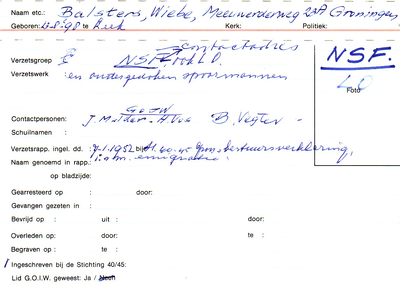 Naam etc.: Balsters, Wiebe, Meeuwerderweg Groningen
Geboren: 13-8-'98 te Kerk: Politiek:
contactadres
Verzetsgroep : NSF. ook L.O. NSF.
Verzetswerk : en ondergedoken spoormannen LO
Foto
GOIW
Contactpersonen: J. B. Vegter -
Schuilnaam :
Verzetsrapp. ingel. dd. : 7-1-1952 bij 40-45 bestuursverklaring,
Naam genoemd in rapp.: i.v.m. emigratie.
op bladzijde:
Gearresteerd op : door:
Gevangen gezeten in :
Bevrijd op : uit : door:
Overleden op: door: te :
Begraven op : te :
Ingeschreven bij de Stichting 40/45:
Lid G.O.I.W. geweest: Ja / Neen